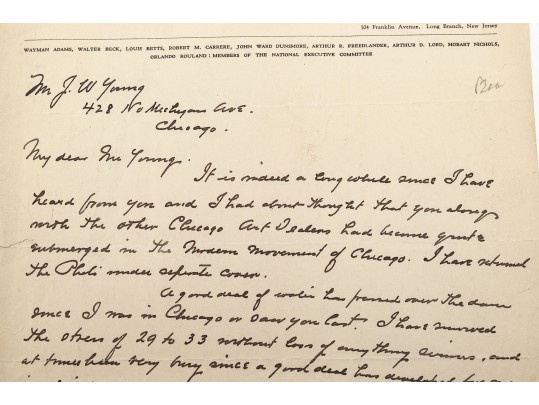 104 Franklin Avenue, Long Branch, New Jersey
WAYMAN ADAMS, WALTER BECK, LOUIS BETTS, ROBERT M. CARRERE, JOHN WARD DUNSMORE, ARTHUR R. FREEDLANDER, ARTHUR D. LORD, HOBART NICHOLS,
ORLANDO ROULAND: MEMBERS OF THE NATIONAL EXECUTIVE COMMITTEE
Mr J. W Young
428 No Michigan Ave.
Chicago.
My dear Mr Young.
It is indeed a long while since I have
heard from you and I had about thought that you along
with the other Chicago Art Dealers had become quite
submerged in the Modern Movement of Chicago. I have returned
the Photo under seperate cover.
A good deal of water has passed over the dam
since I was in Chicago or saw you last. I have survived
the stress of 29 to 33 without loss of anything serious, and
at times been very busy since a good deal has developed